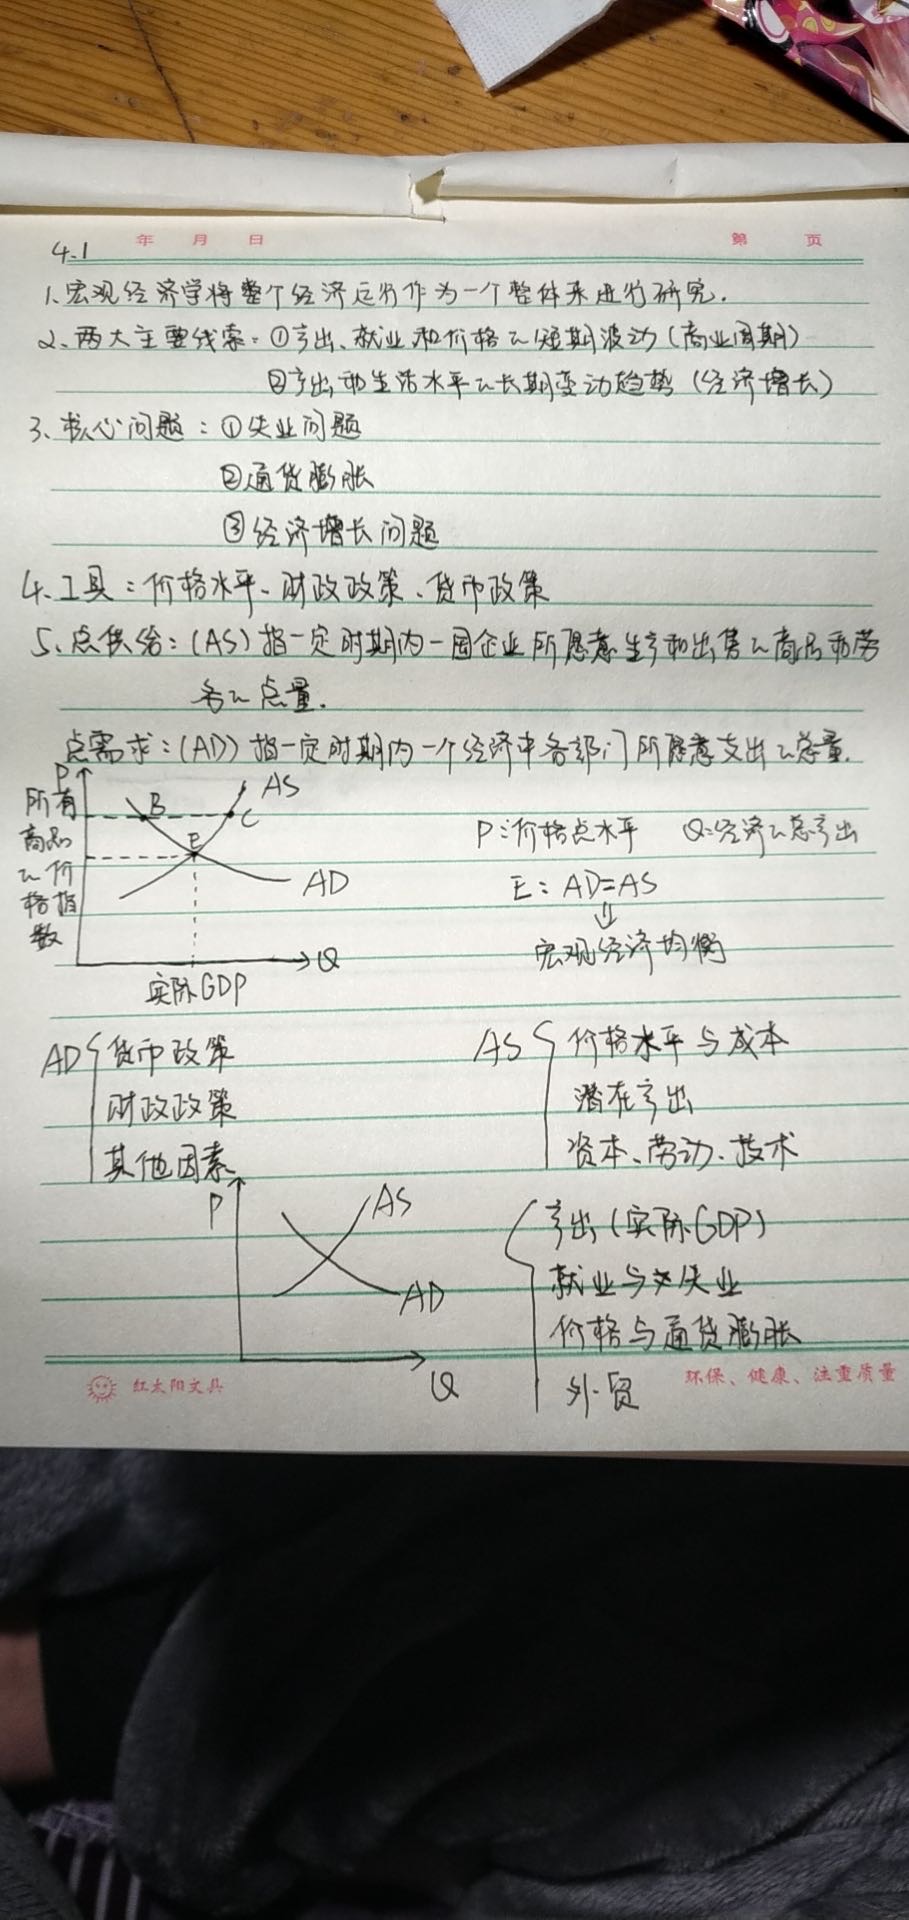 年 月 日
第 页
4.1
1、宏观经济学将整个经济运行作为一个整体来进行研究.
2、两大主要线索:①产出、就业和价格的短期波动(商业周期)
②产出和生活水平的长期变动趋势(经济增长)
3、核心问题:①失业问题
②通货膨胀
③经济增长问题
4、工具:价格水平、财政政策、货币政策
5、总供给:(AS)指一定时期内一国企业所愿意生产和出售的商品和劳
务的总量.
总需求:(AD)指一定时期内一个经济中各部门所愿意支出的总量.
P
所有
商品
的价
格指
数
B
AS
C
E
AD
Q
实际GDP
P:价格总水平 Q:经济的总产出
E:AD=AS
⇓
宏观经济均衡
AD{货币政策
财政政策
其他因素
AS{价格水平与成本
潜在产出
资本、劳动、技术
P
AS
AD
Q
{产出(实际GDP)
就业与失业
价格与通货膨胀
外贸
红太阳文具
环保、健康、注重质量